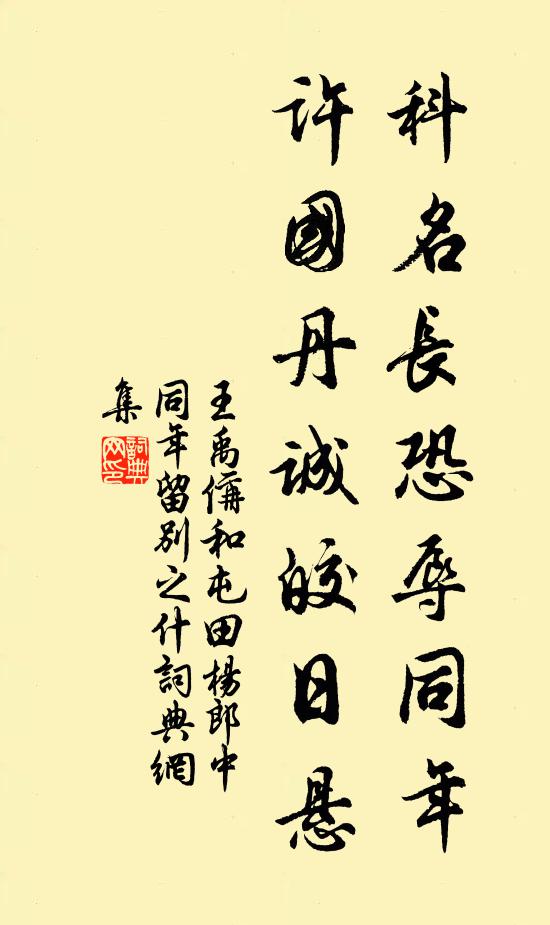 科名長恐辱同年
許國丹誠皎日悬
王禹偁和屯田楊郎中
同年留別之什詞典網
集
詞典
网印